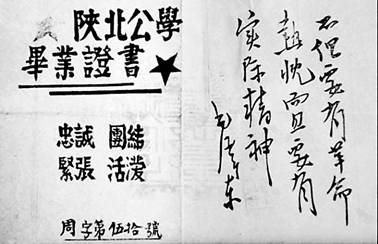 陝北公學
畢業證書
忠誠 團結
緊張 活潑
周字第伍拾號
不但要有革命
热忱而且要有
实际精神
毛泽东